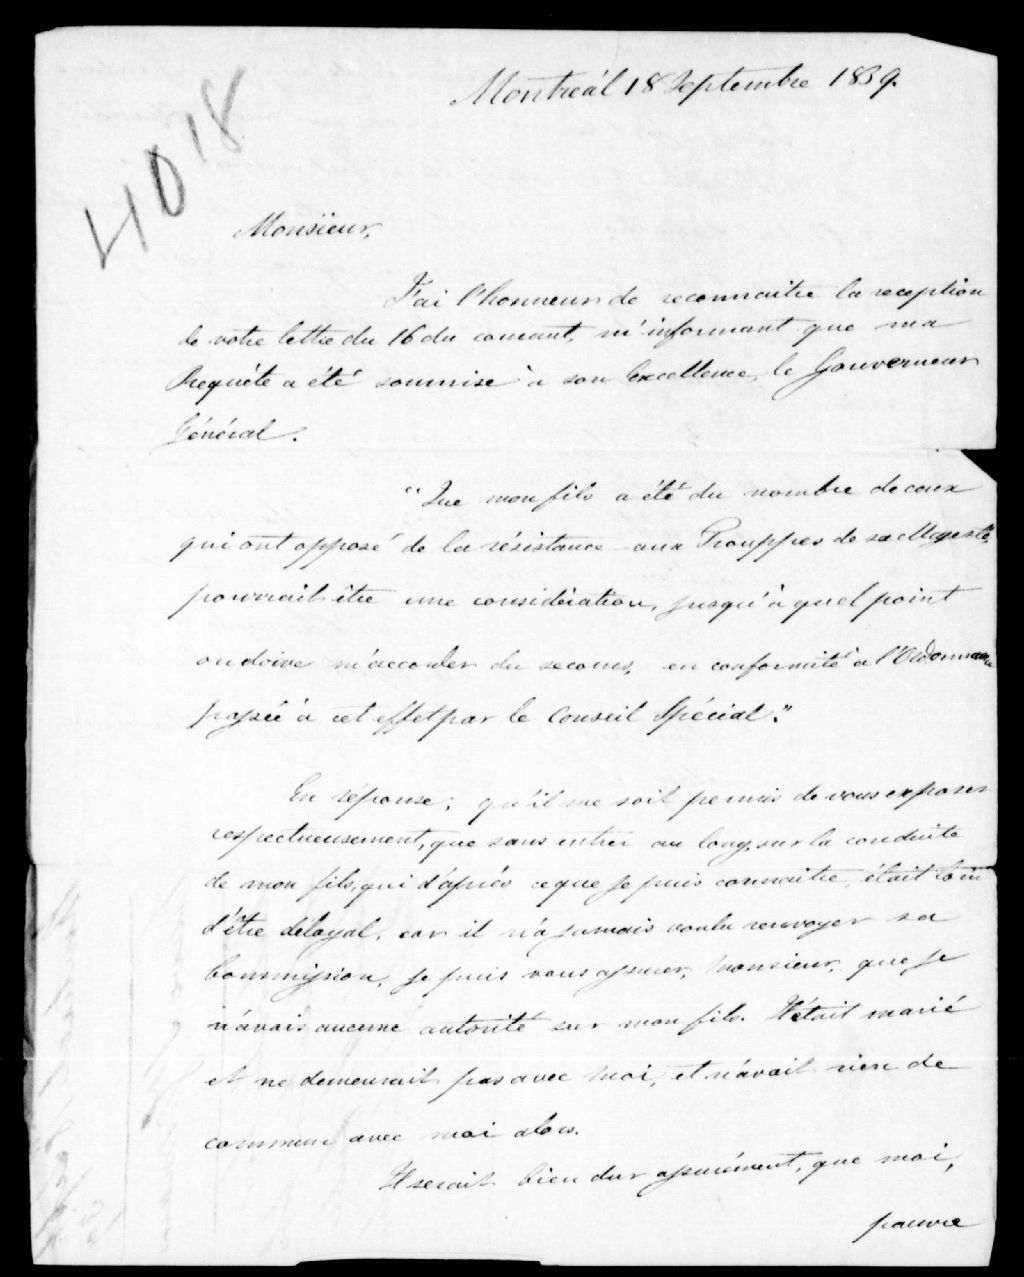 Montréal 18 Septembre 1839.
4018
Monsieur,
J'ai l'honneur de reconnaitre la reception
de votre lettre du 16 du courant, m'informant que ma
Requéte a été soumise à son Excellence, le Gouverneur
Général.
"Que mon fils a été du nombre de ceux
qui ont opposé de la résistance aux Trouppes de sa Majesté,
pourrait être une considération, jusqu'à quel point
on doive m'accorder du secours, en conformité à l'Ordonnance
passée à cet effet par le Conseil Spécial."
En réponse; qu'il me soit permis de vous exposer
respectueusement, que sans entrer au long, sur la conduite
de mon fils, qui d'après ce que je puis connaitre, était loin
d'être déloyal, car il n'a jamais voulu renvoyer sa
Commission, je puis vous assurer, Monsieur, que je
n'avais aucune autorité sur mon fils. Il était marié
et ne demeurait pas avec moi, et n'avait rien de
commun avec moi alors.
Il serait bien dur assurément, que moi,
pauvre